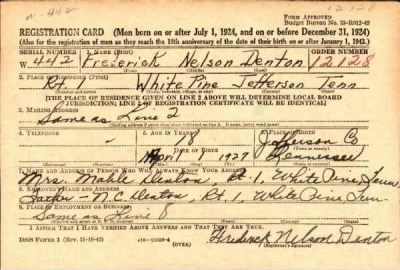 n 442
1218
FORM APPROVED
Budget Bureau No. 33-R012-42
REGISTRATION CARD (Men born on or after July 1, 1924, and on or before December 31, 1924)
(Also for the registration of men as they reach the 18th anniversary of the date of their birth on or after January 1, 1943.)
SERIAL NUMBER 1. NAME (Print) ORDER NUMBER
W 442 Frederick Nelson Denton 12128
2. PLACE OF RESIDENCE (Print)
R1 White Pine Jefferson Tenn
(THE PLACE OF RESIDENCE GIVEN ON LINE 2 ABOVE WILL DETERMINE LOCAL BOARD
JURISDICTION; LINE 2 OF REGISTRATION CERTIFICATE WILL BE IDENTICAL)
3. MAILING ADDRESS
Same as Line 2
4. TELEPHONE 5. AGE IN YEARS 6. PLACE OF BIRTH
18 Jefferson Co
DATE OF BIRTH
April 1 1927 Tennessee
7. NAME AND ADDRESS OF PERSON WHO WILL ALWAYS KNOW YOUR ADDRESS
Mrs. Mable Denton, Rt. 1, White Pine, Tenn.
8. EMPLOYER'S NAME AND ADDRESS
Father - N.C. Denton, Rt. 1, White Pine, Tenn
9. PLACE OF EMPLOYMENT OR BUSINESS
Same as Line 8
I AFFIRM THAT I HAVE VERIFIED ABOVE ANSWERS AND THAT THEY ARE TRUE.
DSS Form 1 (Rev. 11-16-42) (OVER) Frederick Nelson Denton